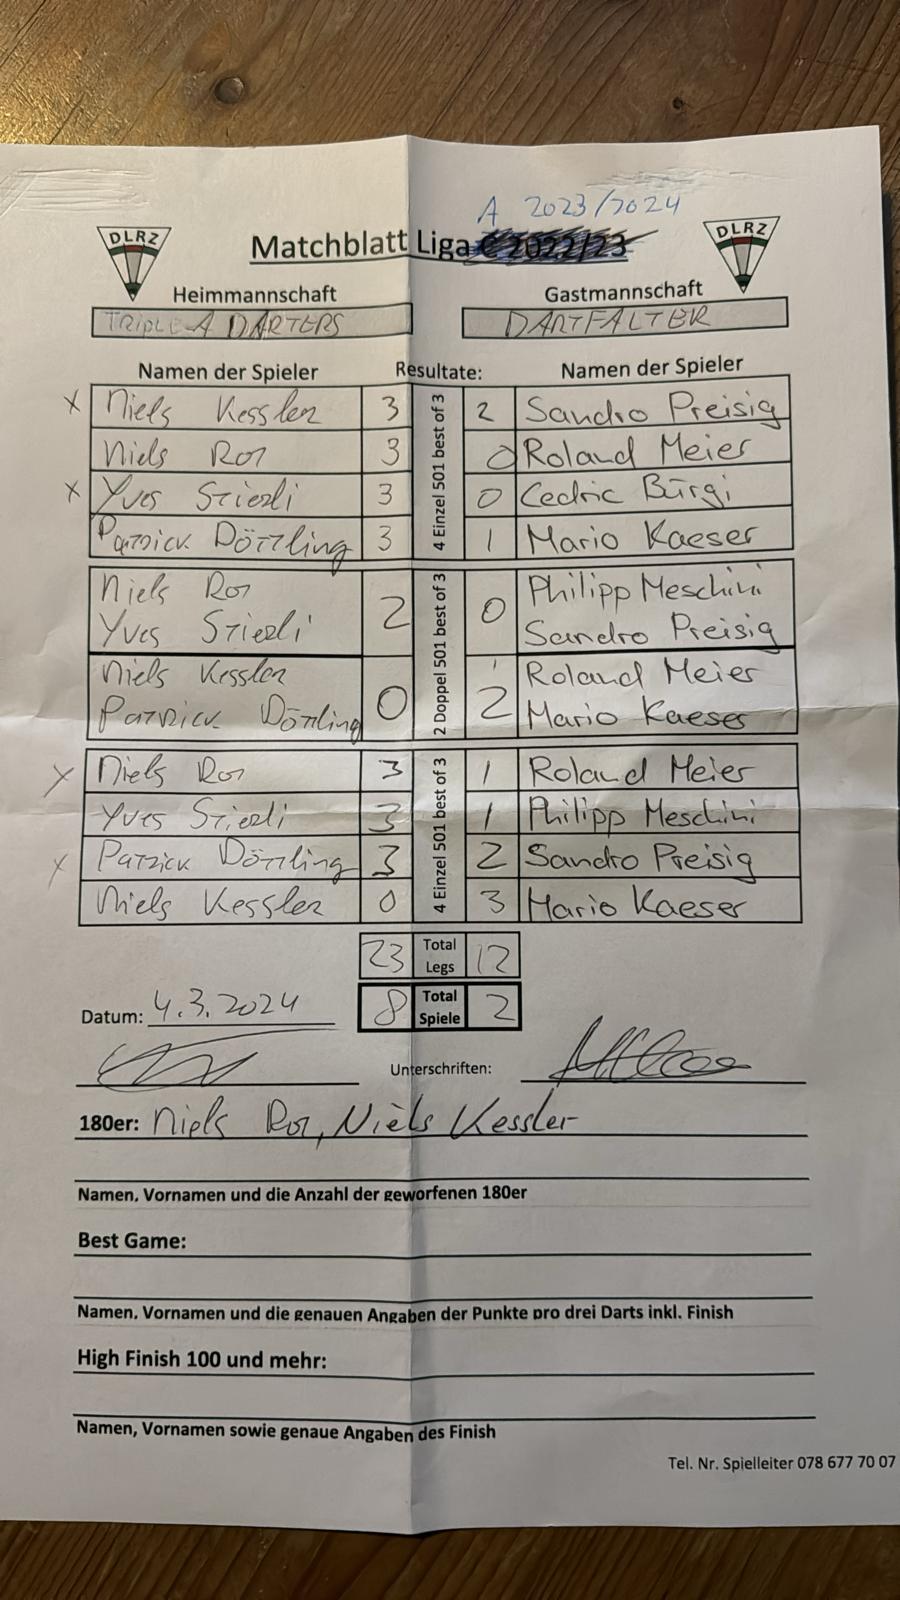 A 2023/2024
DLRZ Matchblatt Liga C 2022/23 DLRZ
Heimmannschaft Gastmannschaft
TRIPLE A DARTERS DARTFALTER
Namen der Spieler Resultate: Namen der Spieler
4 Einzel 501 best of 3
x Niels Kessler 3 2 Sandro Preisig
Niels Ror 3 0 Roland Meier
x Yves Stierli 3 0 Cedric Bürgi
Patrick Döttling 3 1 Mario Kaeser
2 Doppel 501 best of 3
Niels Ror Philipp Meschini
2 0
Yves Stierli Sandro Preisig
Niels Kessler Roland Meier
0 2
Patrick Döttling Mario Kaeser
4 Einzel 501 best of 3
x Niels Ror 3 1 Roland Meier
Yves Stierli 3 1 Philipp Meschini
x Patrick Döttling 3 2 Sandro Preisig
Niels Kessler 0 3 Mario Kaeser
23 Total Legs 12
Datum: 4.3.2024 8 Total Spiele 2
Unterschriften:
180er: Niels Ror, Niels Kessler
Namen, Vornamen und die Anzahl der geworfenen 180er
Best Game:
Namen, Vornamen und die genauen Angaben der Punkte pro drei Darts inkl. Finish
High Finish 100 und mehr:
Namen, Vornamen sowie genaue Angaben des Finish
Tel. Nr. Spielleiter 078 677 70 07